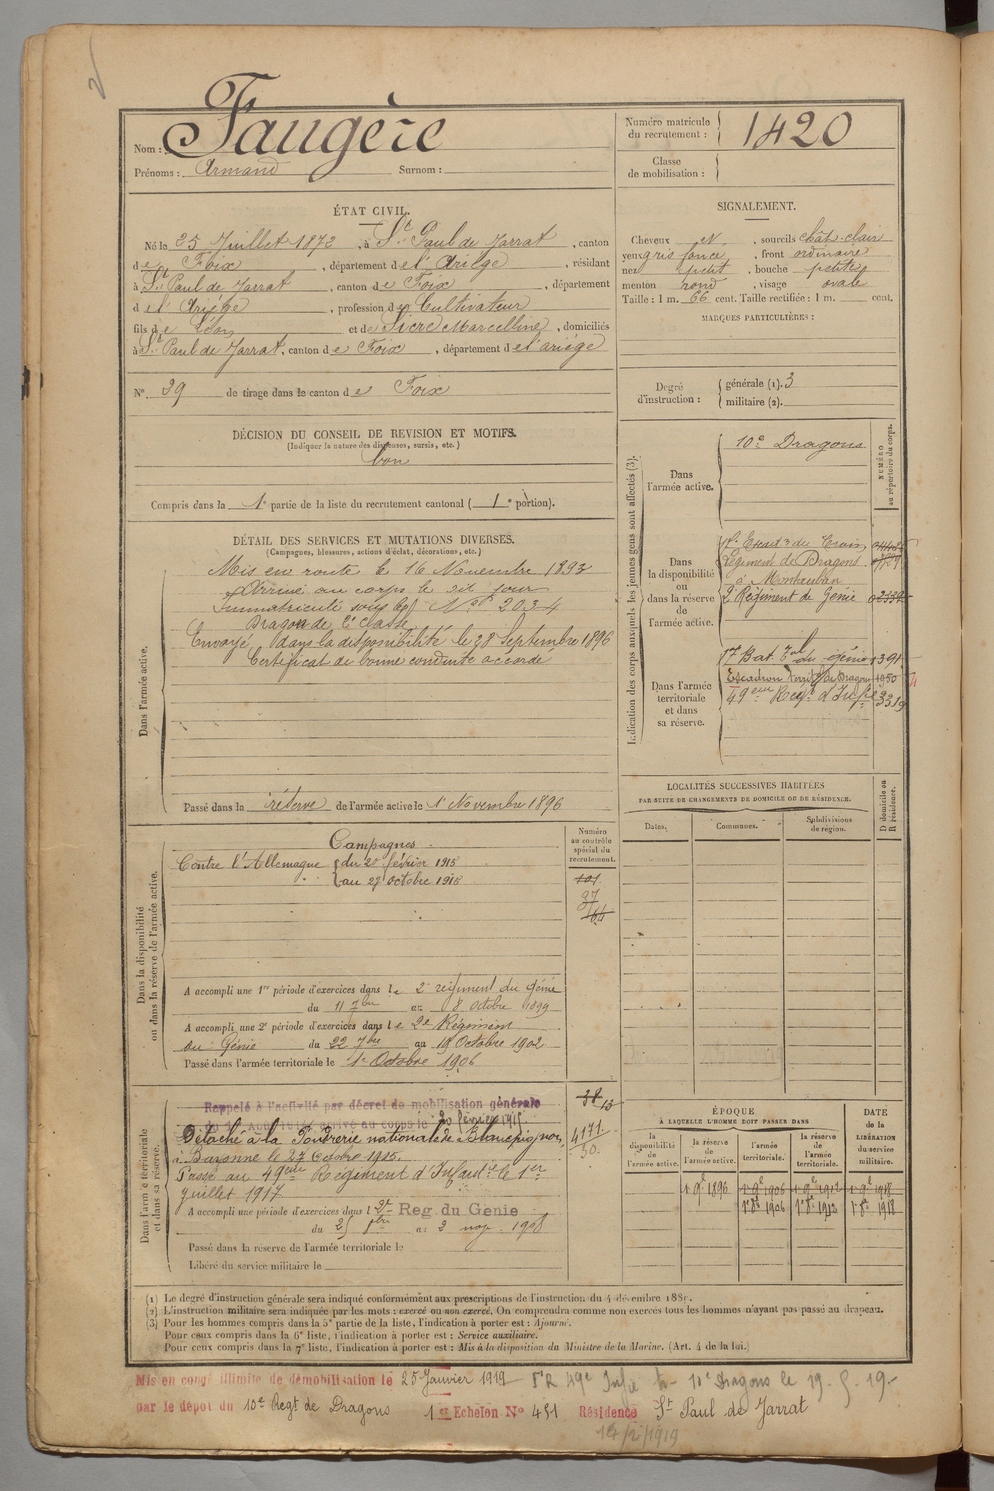 Nom : Faugère
Prénoms : Armand Surnom :
Numéro matricule du recrutement : 1420
Classe de mobilisation :
ÉTAT CIVIL.
Né le 25 Juillet 1872, à St Paul de Jarrat, canton
de Foix, département de l'Ariège, résidant
à St Paul de Jarrat, canton de Foix, département
de l'Ariège, profession de Cultivateur
fils de Léon et de Sicre Marcelline, domiciliés
à St Paul de Jarrat, canton de Foix, département de l'ariège
N° 39 de tirage dans le canton de Foix
SIGNALEMENT.
Cheveux N, sourcils chât-clair
yeux gris foncé, front ordinaire
nez petit, bouche petite
menton rond, visage ovale
Taille : 1 m. 66 cent. Taille rectifiée : 1 m. cent.
MARQUES PARTICULIÈRES :
Degré d'instruction : générale (1). 3
militaire (2).
DÉCISION DU CONSEIL DE REVISION ET MOTIFS.
(Indiquer la nature des dispenses, sursis, etc.)
bon
Compris dans la 1e partie de la liste du recrutement cantonal ( 1e portion).
DÉTAIL DES SERVICES ET MUTATIONS DIVERSES.
(Campagnes, blessures, actions d'éclat, décorations, etc.)
Dans l'armée active.
Mis en route le 16 Novembre 1893
Arrivé au corps le dit jour
Immatriculé sous le N° 2034
Dragon de 2e classe
Envoyé dans la disponibilité le 28 Septembre 1896
Certificat de bonne conduite accordé
Passé dans la réserve de l'armée active le 1e Novembre 1896
Indication des corps auxquels les jeunes gens sont affectés (3).
NUMÉRO au répertoire du corps.
Dans l'armée active.
10e Dragons
Dans la disponibilité ou dans la réserve de l'armée active.
Régiment de Dragons
à Montauban
2e Régiment de Génie
Dans l'armée territoriale et dans sa réserve.
17e Bat. Tal du génie 1391
Escadron Territ. de Dragons 1050
49eme Reg. d'Infie 3319
LOCALITÉS SUCCESSIVES HABITÉES
PAR SUITE DE CHANGEMENTS DE DOMICILE OU DE RÉSIDENCE.
Dates. Communes. Subdivisions de région. D domicile ou R résidence.
Dans la disponibilité ou dans la réserve de l'armée active.
Numéro au contrôle spécial du recrutement.
Campagnes
Contre l'Allemagne du 20 février 1915
au 27 octobre 1915
101
97
164
A accompli une 1re période d'exercices dans le 2e régiment du génie
du 11 7bre au 8 octobre 1899
A accompli une 2e période d'exercices dans le 2e Régiment
du Génie du 22 7bre au 19 Octobre 1902
Passé dans l'armée territoriale le 1e Octobre 1906
Dans l'armée territoriale et dans sa réserve.
Rappelé à l'activité par décret de mobilisation générale
arrivé au corps le 20 février 1915.
Détaché à la Poudrerie nationale de Blancpignon
à Bayonne le 27 Octobre 1915.
Passé au 49eme Régiment d'Infantie le 1er
juillet 1917
A accompli une période d'exercices dans l 2e Reg du Genie
du 25 8bre au 2 nov. 1908
Passé dans la réserve de l'armée territoriale le
Libéré du service militaire le
38 13
4171
50.
ÉPOQUE
À LAQUELLE L'HOMME DOIT PASSER DANS
la disponibilité de l'armée active. la réserve de l'armée active. l'armée territoriale. la réserve de l'armée territoriale.
DATE de la LIBÉRATION du service militaire.
1e 9e 1896 1e 9e 1906 1e 9e 1912 1e 9e 1918
1e 8e 1906 1e 8e 1912 1e 8e 1918
(1) Le degré d'instruction générale sera indiqué conformément aux prescriptions de l'instruction du 4 décembre 1889.
(2) L'instruction militaire sera indiquée par les mots : exercé ou non exercé. On comprendra comme non exercés tous les hommes n'ayant pas passé au drapeau.
(3) Pour les hommes compris dans la 5e partie de la liste, l'indication à porter est : Ajourné.
Pour ceux compris dans la 6e liste, l'indication à porter est : Service auxiliaire.
Pour ceux compris dans la 7e liste, l'indication à porter est : Mis à la disposition du Ministre de la Marine. (Art. 4 de la loi.)
Mis en congé illimité de démobilisation le 25 Janvier 1919
par le dépôt du 10e Regt de Dragons 1er Echelon N° 451 Résidence St Paul de Jarrat